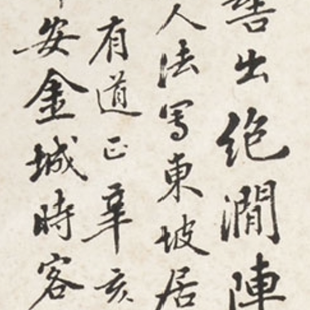 出絶澗陣
人法寫東坡居
有道正辛亥
安金城時客